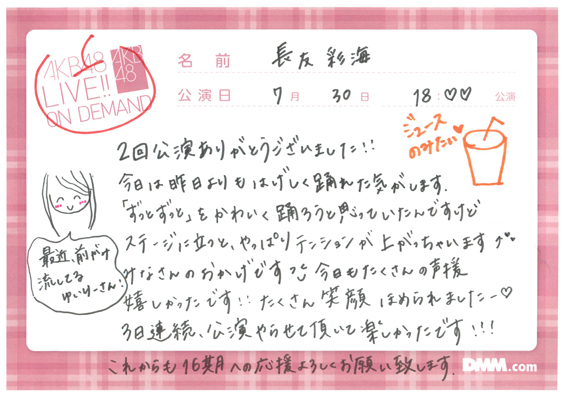 AKB48
LIVE!!
ON DEMAND
AKB
48
名前 長友 彩海
公演日 7月 30日 18:♡♡ 公演
ジュース
のみたい♡
2回公演ありがとうございました!!
今日は昨日よりもはげしく踊れた気がします.
「ずっとずっと」をかわいく踊ろうと思っていたんですけど
ステージに立つと、やっぱりテンションが上がっちゃいます
みなさんのおかげです 今日もたくさんの声援
嬉しかったです!! たくさん笑顔ほめられましたー♡
3日連続、公演やらせて頂いて楽しかったです!!!
これからも16期月への応援よろしくお願い致します.
最近、前がみ
流してる
ゆいりーさん!
DMM.com